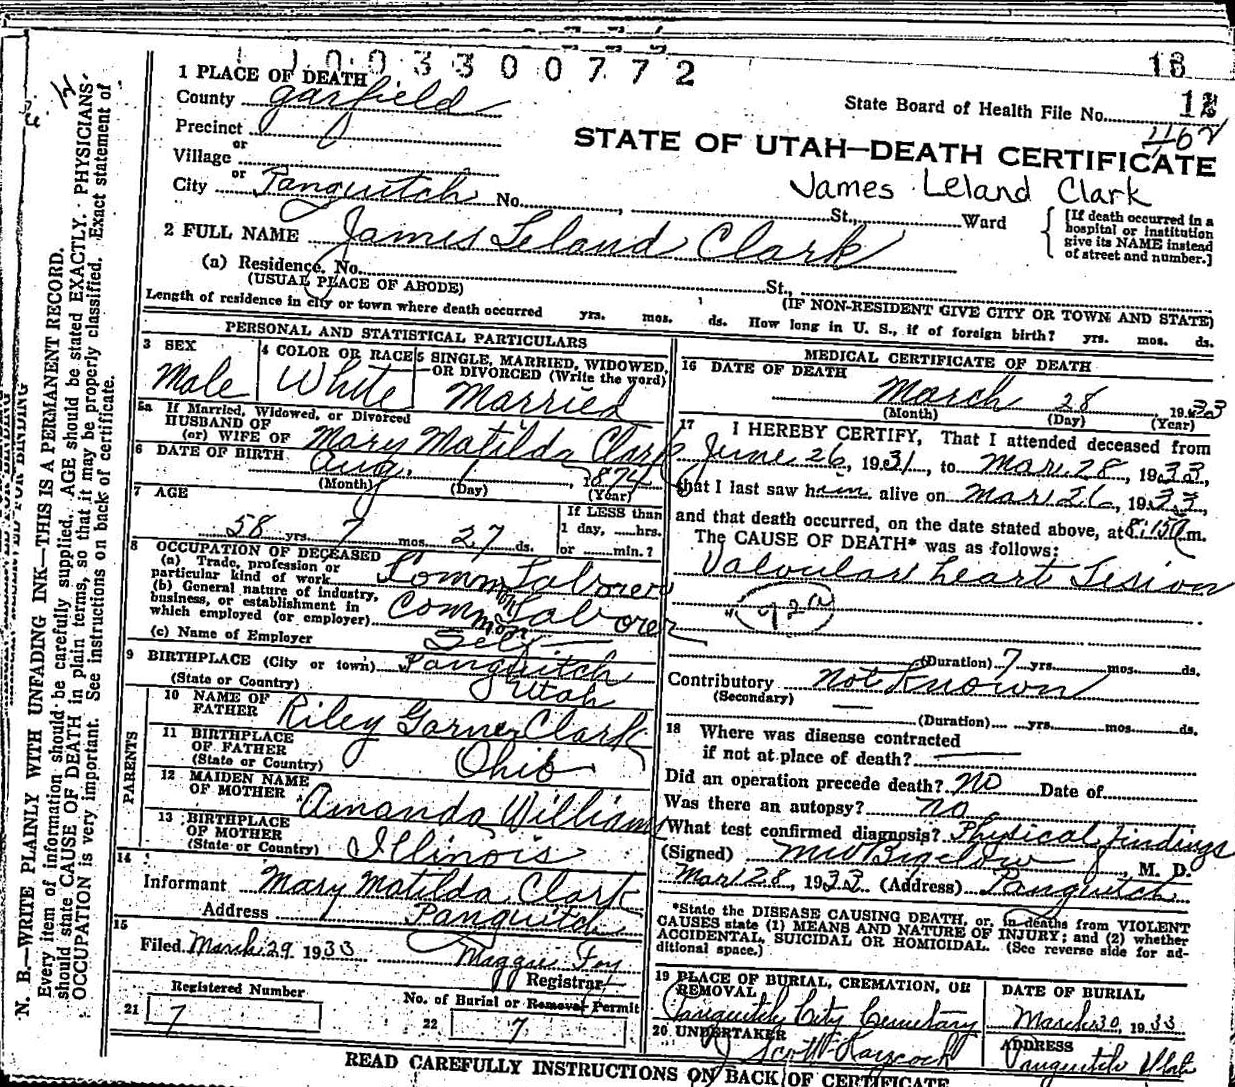 1 0 0 3 3 0 0 7 7 2
1 PLACE OF DEATH
County Garfield
State Board of Health File No. 12
Precinct
468
or
Village
STATE OF UTAH—DEATH CERTIFICATE
or
City Panguitch No. , St., Ward
James Leland Clark
[If death occurred in a hospital or institution give its NAME instead of street and number.]
2 FULL NAME James Leland Clark
(a) Residence. No. St.,
(USUAL PLACE OF ABODE) (IF NON-RESIDENT GIVE CITY OR TOWN AND STATE)
Length of residence in city or town where death occurred yrs. mos. ds. How long in U. S., if of foreign birth? yrs. mos. ds.
PERSONAL AND STATISTICAL PARTICULARS
3 SEX Male
4 COLOR OR RACE White
5 SINGLE, MARRIED, WIDOWED, OR DIVORCED (Write the word) Married
5a If Married, Widowed, or Divorced
HUSBAND OF
(or) WIFE OF Mary Matilda Clark
6 DATE OF BIRTH Aug. 1, 1874
(Month) (Day) (Year)
7 AGE
58 yrs. 7 mos. 27 ds.
If LESS than
1 day, hrs.
or min.?
8 OCCUPATION OF DECEASED
(a) Trade, profession or
particular kind of work Common Laborer
(b) General nature of industry,
business, or establishment in
which employed (or employer) Common Laborer
(c) Name of Employer Self
9 BIRTHPLACE (City or town) Panguitch
(State or Country) Utah
PARENTS
10 NAME OF
FATHER Riley Garner Clark
11 BIRTHPLACE
OF FATHER
(State or Country) Ohio
12 MAIDEN NAME
OF MOTHER Amanda Williams
13 BIRTHPLACE
OF MOTHER
(State or Country) Illinois
14
Informant Mary Matilda Clark
Address Panguitch
15
Filed March 29 1933 Maggie Foy
Registrar
Registered Number
21 7
No. of Burial or Removal Permit
22 7
MEDICAL CERTIFICATE OF DEATH
16 DATE OF DEATH
March 28, 1933
(Month) (Day) (Year)
17 I HEREBY CERTIFY, That I attended deceased from
June 26, 1931, to Mar. 28, 1933,
that I last saw him alive on Mar 26, 1933,
and that death occurred, on the date stated above, at 8:15 m.
The CAUSE OF DEATH* was as follows:
Valvular heart Lesion
92a
(Duration) 7 yrs. mos. ds.
Contributory not known
(Secondary)
(Duration) yrs. mos. ds.
18 Where was disease contracted
if not at place of death?
Did an operation precede death? no Date of
Was there an autopsy? no
What test confirmed diagnosis? Physical findings
(Signed) M W Bigelow M. D.
Mar 28, 1933 (Address) Panguitch
*State the DISEASE CAUSING DEATH, or, in deaths from VIOLENT
CAUSES state (1) MEANS AND NATURE OF INJURY; and (2) whether
ACCIDENTAL, SUICIDAL OR HOMICIDAL. (See reverse side for ad-
ditional space.)
19 PLACE OF BURIAL, CREMATION, OR
REMOVAL
Panguitch City Cemetary
DATE OF BURIAL
March 30, 1933
20 UNDERTAKER
ADDRESS
Panguitch Utah
READ CAREFULLY INSTRUCTIONS ON BACK OF CERTIFICATE
N. B.—WRITE PLAINLY WITH UNFADING INK—THIS IS A PERMANENT RECORD.
Every item of information should be carefully supplied. AGE should be stated EXACTLY. PHYSICIANS
should state CAUSE OF DEATH in plain terms, so that it may be properly classified. Exact statement of
OCCUPATION is very important. See instructions on back of certificate.